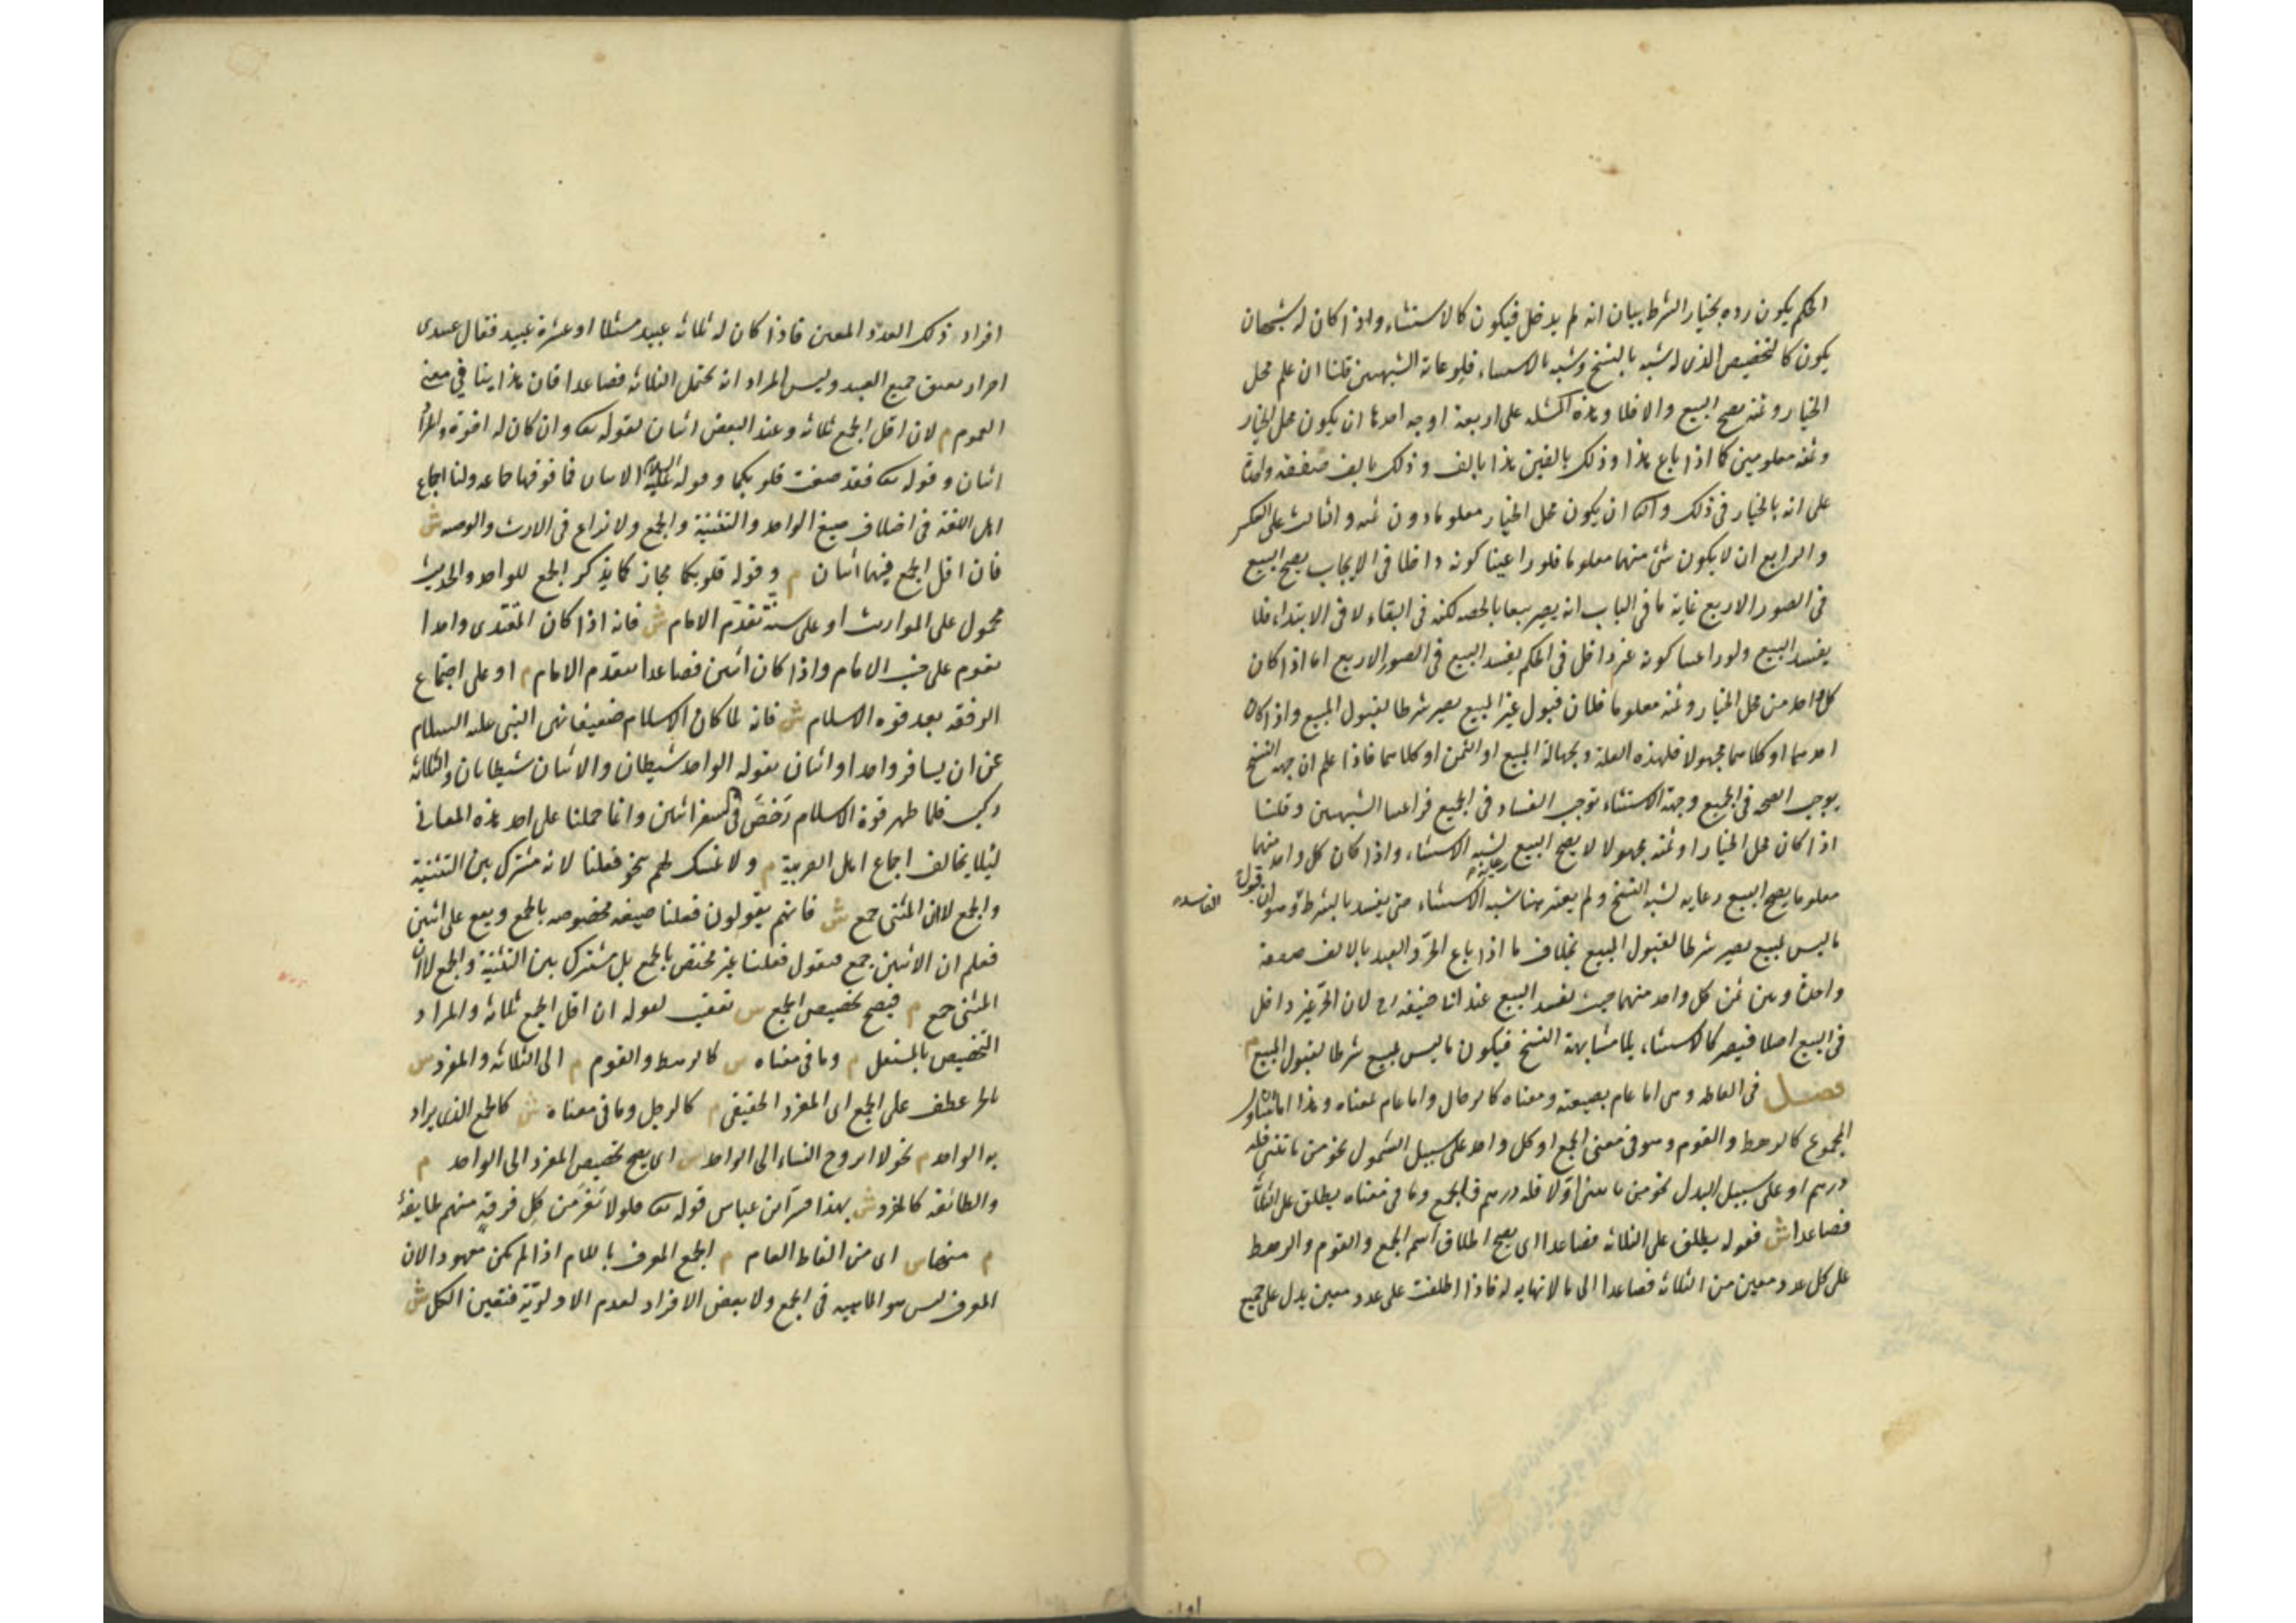 الحكم يكون رده بخيار الشرط بيان انه لم يدخل فيكون كالاستثناء واذا كان له شبهان
يكون كالتخصيص الذى له شبه بالنسخ وشبه بالاستثناء فلرعاية الشبهين قلنا ان علم محل
الخيار وثمنه يصح البيع والا فلا وهذه المسئلة على اربعة اوجه احدها ان يكون محل الخيار
وثمنه معلومين كما اذا باع هذا وذلك بالفين هذا بالف وذلك بالف صفقة واحدة
على انه بالخيار فى ذلك والثانى ان يكون محل الخيار معلوما دون ثمنه والثالث على العكس
والرابع ان لا يكون شئ منهما معلوما فلو راعينا كونه داخلا فى الايجاب يصح البيع
فى الصور الاربع غاية ما فى الباب انه يصير بيعا بالحصة لكنه فى البقاء لا فى الابتداء فلا
يفسد البيع ولو راعينا كونه غير داخل فى الحكم يفسد البيع فى الصور الاربع اما اذا كان
كل واحد من محل الخيار وثمنه معلوما فلان قبول غير المبيع يصير شرطا لقبول المبيع واذا كان
احدهما او كلاهما مجهولا فلهذه العلة ولجهالة المبيع او الثمن او كلاهما فاذا علم ان جهة النسخ
يوجب الصحة فى الجميع وجهة الاستثناء توجب الفساد فى الجميع فراعينا الشبهين وقلنا
اذا كان محل الخيار او ثمنه مجهولا لا يصح البيع رعاية لشبه الاستثناء واذا كان كل واحد منهما
معلوما يصح البيع رعاية لشبه النسخ ولم يعتبر هنا شبه الاستثناء حتى يفسد بالشرط وهو ان قبول
الفاسد
ما ليس بمبيع يصير شرطا لقبول المبيع بخلاف ما اذا باع الحر والعبد بالالف صفقة
واحدة وبين ثمن كل واحد منهما حيث يفسد البيع عند ابى حنيفة رح لان الحر غير داخل
فى البيع اصلا فيصير كالاستثناء بلا مشابهة النسخ فيكون ما ليس بمبيع شرطا لقبول المبيع م
فصل فى الفاظه وهى اما عام بصيغته ومعناه كالرجال واما عام بمعناه وهذا اما ان يتناول
المجموع كالرهط والقوم وهو فى معنى الجمع او كل واحد على سبيل الشمول نحو من ياتنى فله
درهم او على سبيل البدل نحو من ياتينى اولا فله درهم فالجمع وما فى معناه يطلق على الثلاثة
فصاعدا ش فقوله يطلق على الثلاثة فصاعدا اى يصح اطلاق اسم الجمع والقوم والرهط
على كل عدد معين من الثلاثة فصاعدا الى ما لا نهاية له فاذا اطلقت على عدد معين يدل على جميع
افراد ذلك العدد المعين فاذا كان له ثلاثة عبيد مثلا او عشرة عبيد فقال عبيدى
احرار يعتق جميع العبيد وليس المراد انه يحتمل الثلاثة فصاعدا فان هذا ينافى معنى
العموم م لان اقل الجمع ثلاثة وعند البعض اثنان لقوله تع وان كان له اخوة والمراد
اثنان وقوله تع فقد صغت قلوبكما وقوله عليه السلام الاثنان فما فوقهما جماعة ولنا اجماع
اهل اللغة فى اختلاف صيغ الواحد والتثنية والجمع ولا نزاع فى الارث والوصية ش
فان اقل الجمع فيهما اثنان م وقوله قلوبكما مجاز كما يذكر الجمع للواحد والحديث
محمول على المواريث او على سنة تقدم الامام ش فانه اذا كان المقتدى واحدا
يقوم على جنب الامام واذا كان اثنين فصاعدا يتقدم الامام م او على اجتماع
الرفقة بعد قوة الاسلام ش فانه لما كان الاسلام ضعيفا نهى النبى عليه السلام
عن ان يسافر واحد او اثنان بقوله الواحد شيطان والاثنان شيطانان والثلاثة
ركب فلما ظهر قوة الاسلام رخص فى سفر اثنين وانما حملنا على احد هذه المعانى
لئلا يخالف اجماع اهل العربية م ولا تمسك لهم بنحو فعلنا لانه مشترك بين التثنية
والجمع لا ان المثنى جمع ش فانهم يقولون فعلنا صيغة مخصوصة بالجمع ويقع على اثنين
فعلم ان الاثنين جمع فنقول فعلنا غير مختص بالجمع بل مشترك بين التثنية والجمع لا ان
المثنى جمع م فيصح تخصيص الجمع ش تعقيب لقوله ان اقل الجمع ثلاثة والمراد
التخصيص بالمستقل م وما فى معناه ش كالرهط والقوم م الى الثلاثة والمفرد ش
بالجر عطف على الجمع اى المفرد الحقيقى م كالرجل وما فى معناه ش كالجمع الذى يراد
به الواحد م نحو لا اتزوج النساء الى الواحد ش اى يصح تخصيص المفرد الى الواحد م
والطائفة كالمفرد ش بهذا فسر ابن عباس قوله تع فلولا نفر من كل فرقة منهم طايفة
م منها ش اى من الفاظ العام م الجمع المعرف باللام اذا لم يكن معهودا لان
المعرف ليس هو الماهية فى الجمع ولا بعض الافراد لعدم الاولوية فتعين الكل ش